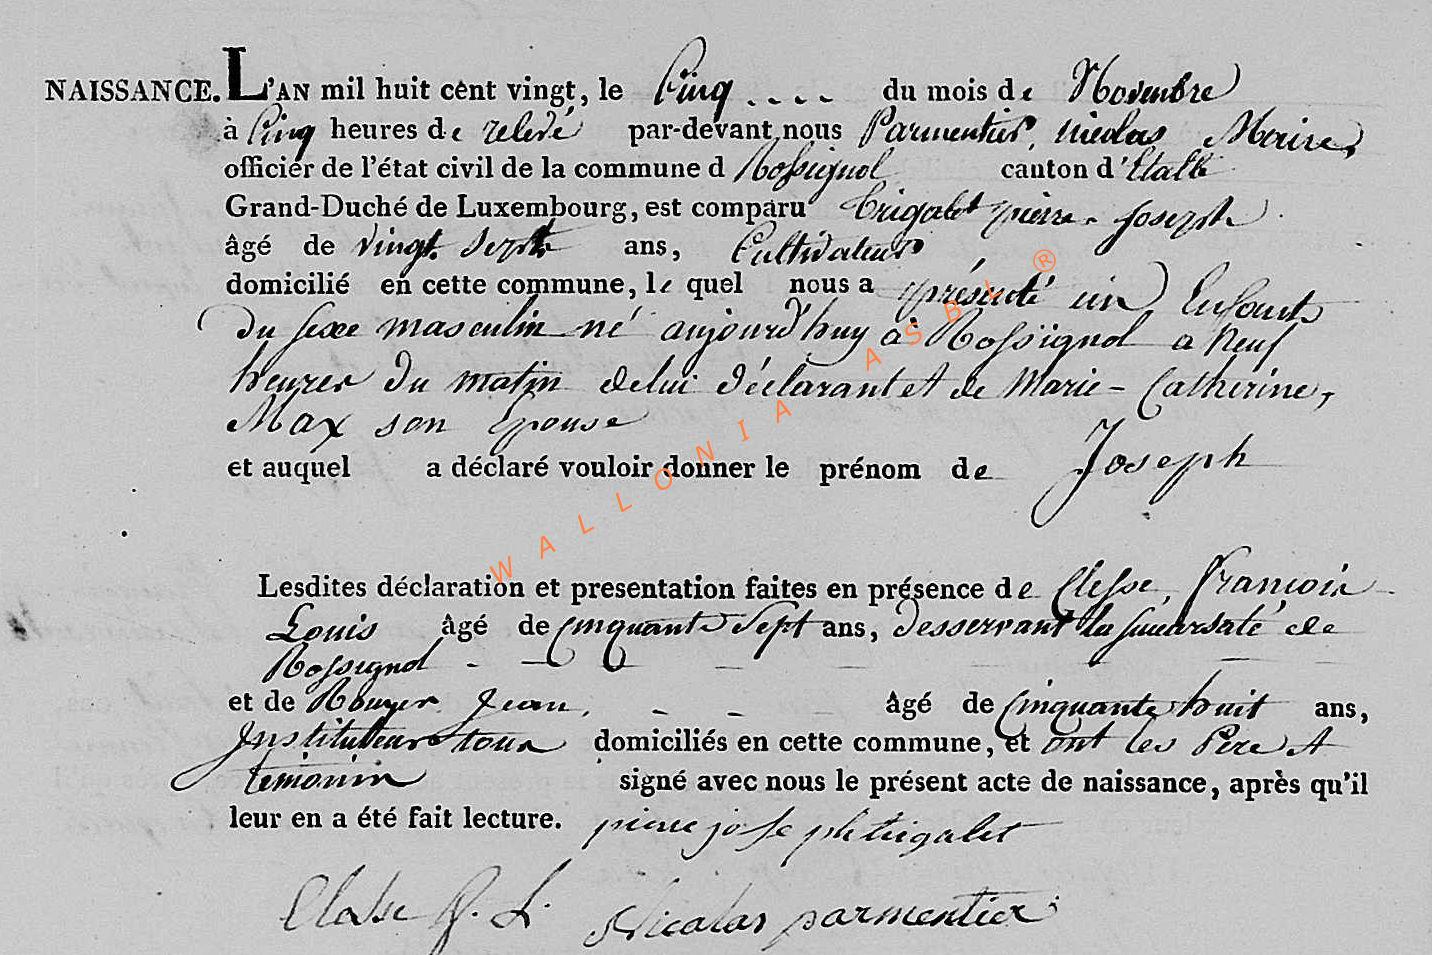 NAISSANCE. L'AN mil huit cent vingt, le Cinq .... du mois de Novembre
à Cinq heures de relevé par-devant nous Parmentier, nicolas Maire,
officier de l'état civil de la commune d Rossignol canton d'Etalle
Grand-Duché de Luxembourg, est comparu Trigalet pierre-Joseph
âgé de vingt Sept ans, Cultivateur
domicilié en cette commune, le quel nous a présenté un Enfant
Du Sexe masculin né aujourd'huy à Rossignol a Neuf
heures Du matin de lui Déclarant et de Marie-Catherine,
Max son Epouse
et auquel a déclaré vouloir donner le prénom de Joseph
Lesdites déclaration et presentation faites en présence de Clesse, Francois
Louis âgé de Cinquante Sept ans, Desservant la succursale de
Rossignol
et de Rouyer Jean, âgé de Cinquante huit ans,
Instituteur tous domiciliés en cette commune, et ont les Pere et
temoins signé avec nous le présent acte de naissance, après qu'il
leur en a été fait lecture. pierre joseph trigalet
Clesse f. L. Nicolas parmentier
WALLONIA ASBL ®